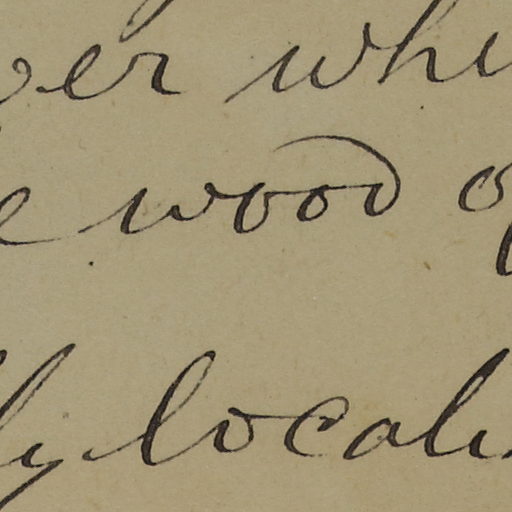 er whi
e wood o
ly locali